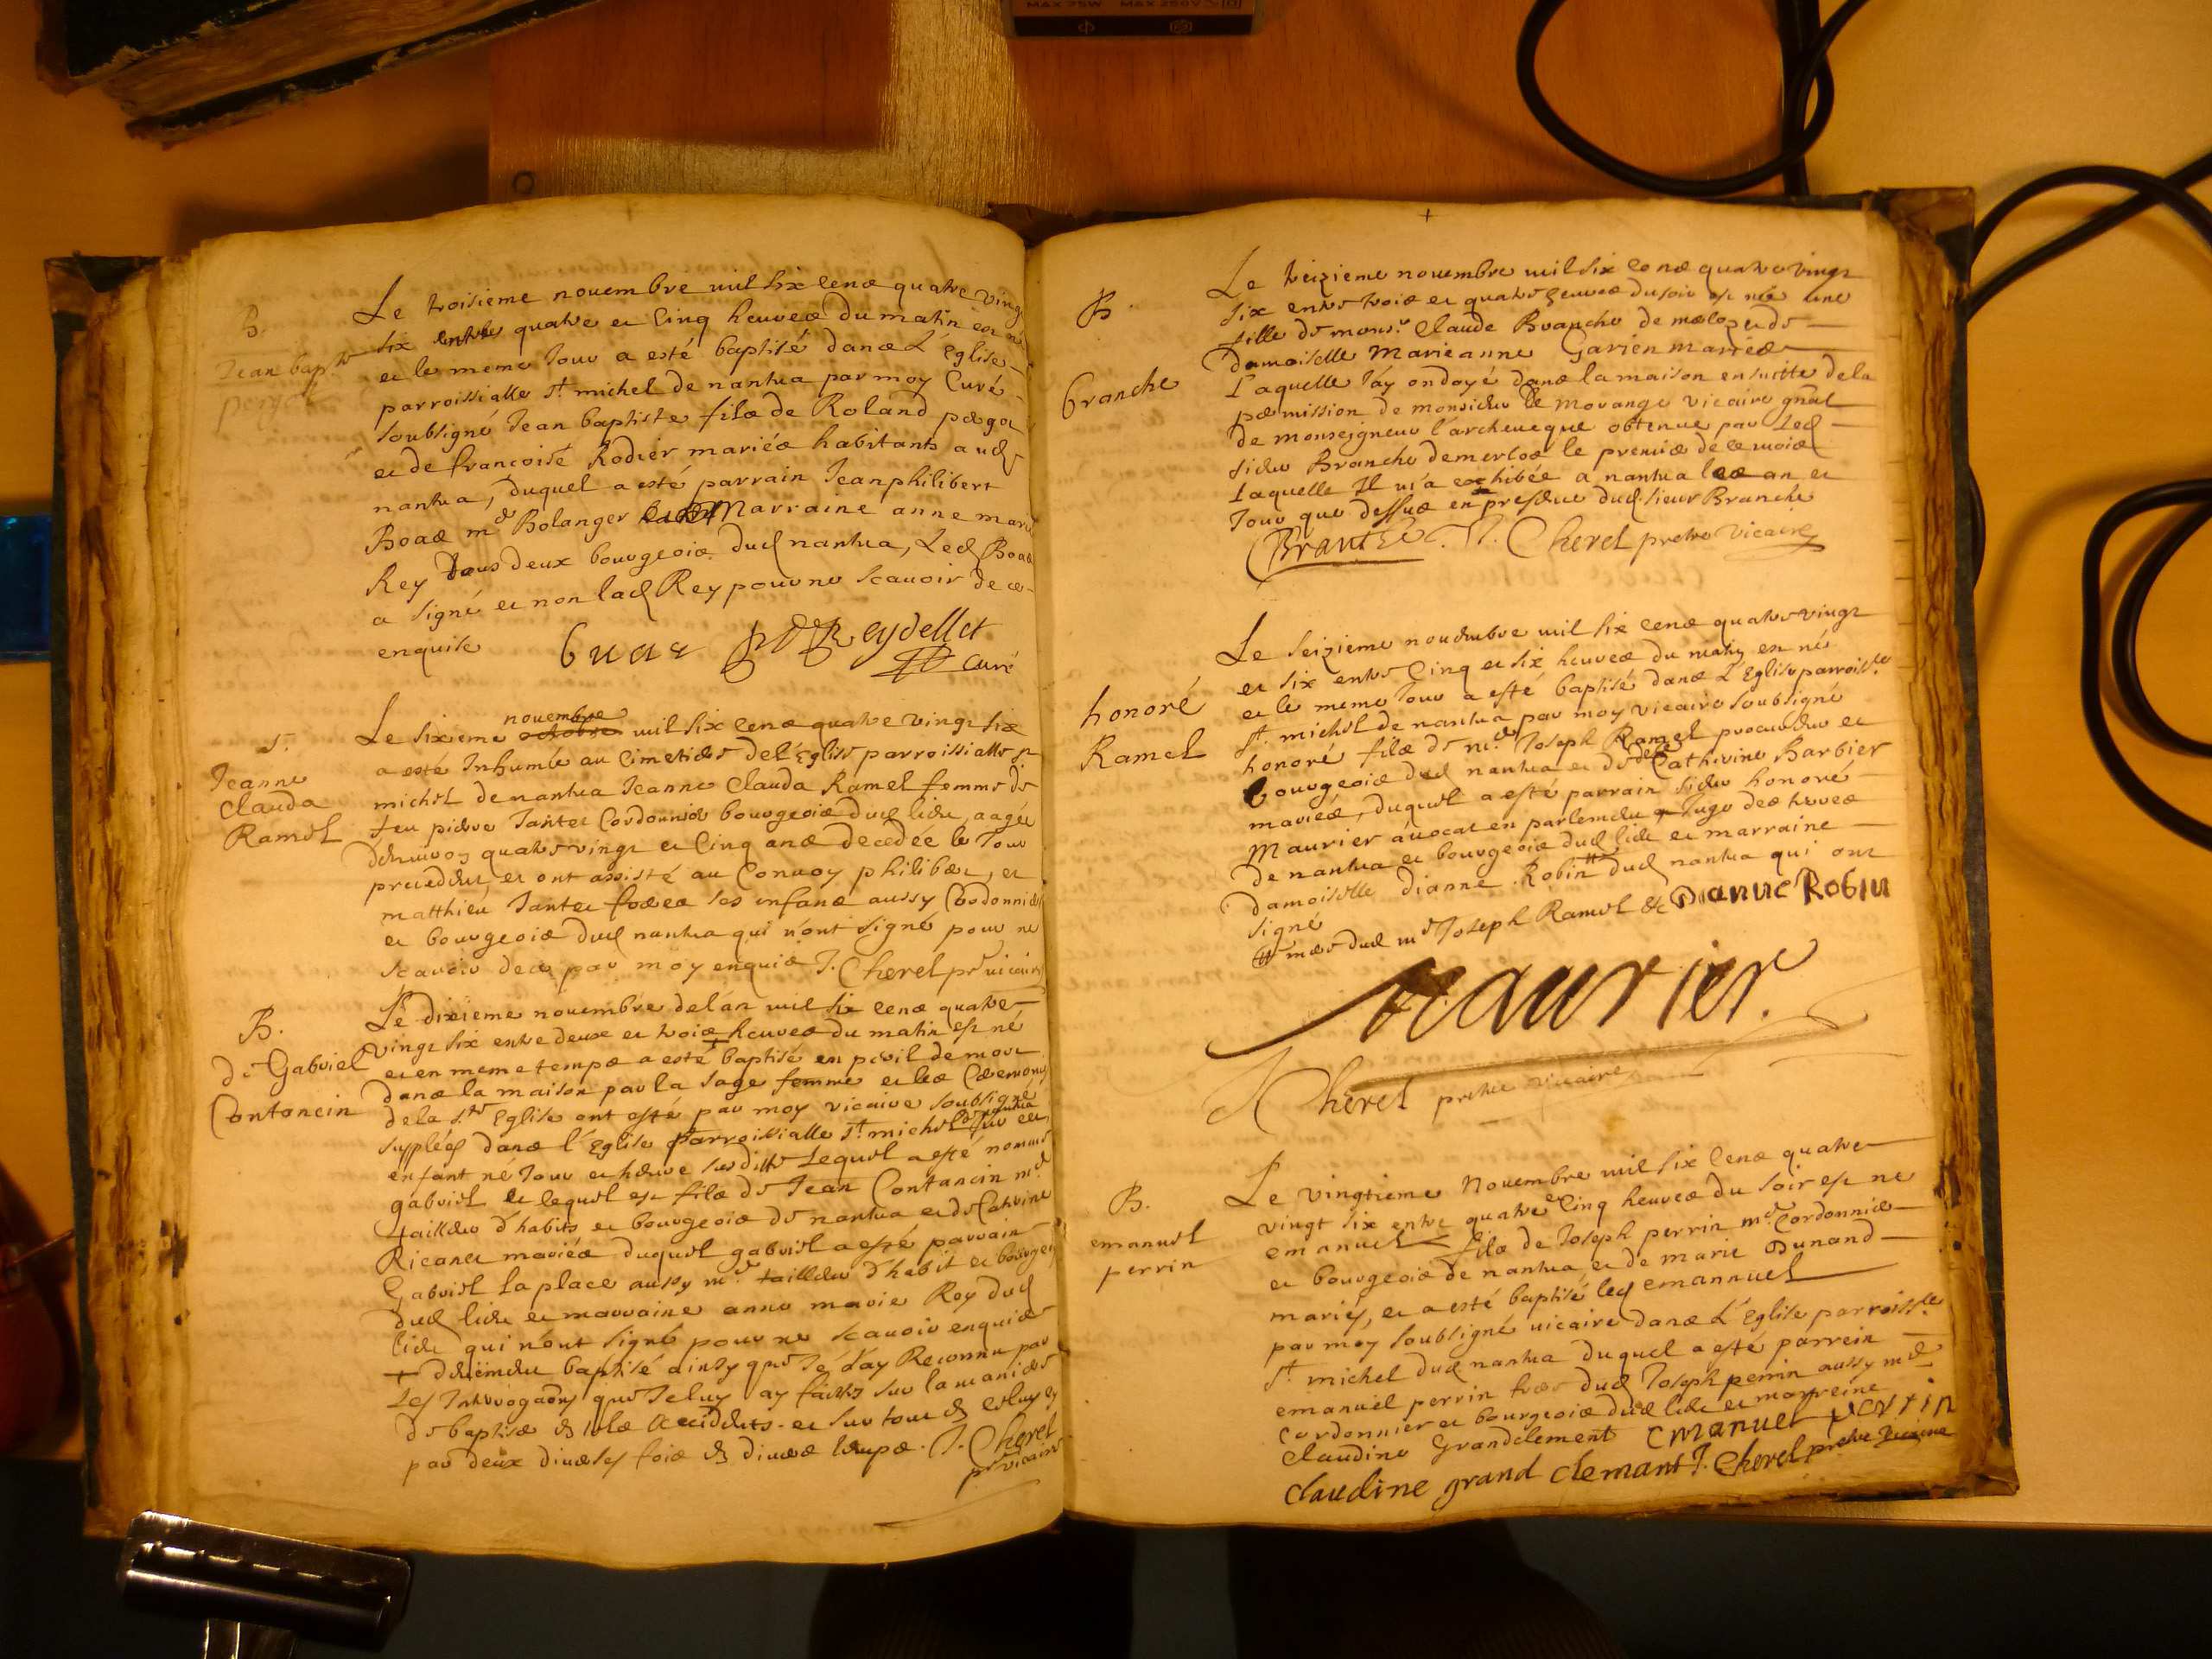 MAX 75W MAX 250V
B.
Jean bap.te
perga
Le troisieme nouembre mil six cens quatre vingt
six entre quatre et cinq heures du matin est né
et le meme jour a esté baptisé dans L'Eglise
parroissialle st michel de nantua par moy Curé
soubsigné Jean baptiste fils de Roland
et de francoise Rodier mariés habitants aud
nantua, duquel a esté parrain Jean philibert
md Bolanger Marraine anne marie
Rey tous deux bourgeois dud nantua, Led
a signé et non lad Rey pour ne scauoir de ce
enquise
Reydellet
curé
S.
Jeanne
Clauda
Ramel
nouembre
Le sixieme octobre mil six cens quatre vingt six
a esté Inhumée au Cimetiere de L'Eglise parroissialle st
michel de nantua Jeanne Clauda Ramel femme de
feu pierre Tantet Cordonnier bourgeois dud lieu, aagée
denuiron quatre vingt et Cinq ans decedée le Jour
precedent, et ont assisté au Conuoy philibert, et
matthieu Tantet freres ses enfans aussy Cordonniers
et bourgeois dud nantua qui n'ont signé pour ne
scauoir de ce par moy enquis J. Cherel ptre vicaire
B.
de Gabriel
Contancin
Le dixieme nouembre de lan mil six cens quatre
vingt six entre deux et trois heures du matin est né
et en meme temps a esté + baptisé en peril de mort
dans la maison par la sage femme et les Ceremonies
de la ste Eglise ont esté par moy vicaire soubsigné
de nantua
supplées dans l'Eglise parroissialle st michel sur cet
enfant né Jour et heure susditte Lequel a esté nommé
gabriel et lequel est fils de Jean Contancin md
tailleur d'habits et bourgeois de nantua et de Catrine
Ricanet mariés duquel gabriel a esté parrain
Gabriel La place aussy md tailleur d'habit et bourgeois
dud lieu et marraine anne marie Rey dud
lieu qui n'ont signé pour ne scauoir enquis
+ deüement baptisé ainsy que Je l'ay Reconnu par
Les Interrogaons que Je luy ay faittes sur la maniere
de baptiser et sur tout
par deux diuerses fois et diuers temps. J. Cherel
ptre vicaire
B.
branche
Le treizieme nouembre mil six cens quatre vingt
six entre trois et quatre heures du soir est née une
fille de monsr. Claude Branche de et de
damoiselle Marie anne Garien mariés
Laquelle J'ay ondoyé dans la maison en suitte de la
permission de monsieur de Morange vicaire gnal
de monseigneur l'archeueque obtenue par Led
sieur Branche demerloz le premier de ce mois
Laquelle Il m'a exhibée a nantua les an et
Jour que dessus en presence dud sieur Branche
Branche. J. Cherel pretre vicaire
honoré
Ramel
Le seizieme nouembre mil six cens quatre vingt
et six entre Cinq et six heures du matin est né
et le meme Jour a esté baptisé dans L'Eglise parroissle
st. michel de nantua par moy vicaire soubsigné
honoré fils de me Joseph Ramel procureur et
bourgeois dud nantua et de dlle Catherine Barbier
mariés, duquel a esté parrain sieur honoré
Maurier auocat en parlement et Juge des terres
de nantua et bourgeois dud lieu et marraine
damoiselle dianne Robin # dud nantua qui ont
signé
# mere dud me Joseph Ramel & Dianne Robin
Maurier.
J Cherel pretre vicaire
B.
emanuel
perrin
Le vingtieme Nouembre mil six cens quatre
vingt six entre quatre et Cinq heures du soir est ne
emanuel fils de Joseph perrin md Cordonnier
et bourgeois de nantua et de marie Dunand
mariés, et a esté baptisé led emannuel
par moy soubsigné vicaire dans L'Eglise parroissle
st. michel dud nantua duquel a esté parrein
emanuel perrin frere dud Joseph perrin aussy md
cordonnier et bourgeois dud lieu et marreine
Claudine Grandclement emanuel perrin
claudine grand clemant J. Cherel pretre vicaire